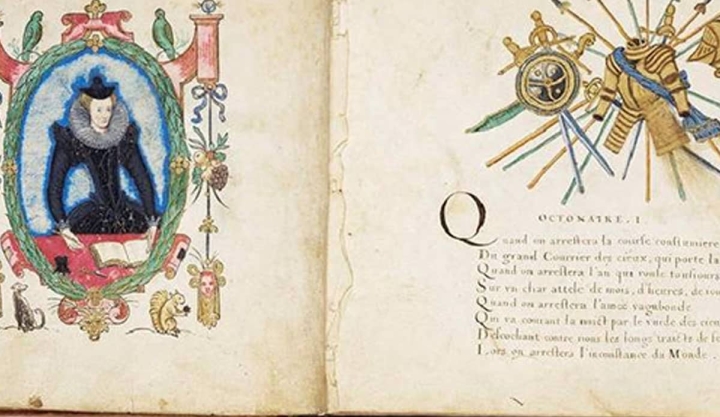 OCTONAIRE. I.
Quand on arrestera la course coustumiere
Du grand Courrier des cieux, qui porte la
Quand on arrestera l'an qui roule tousiours
Sur vn char attelé de mois, d'heures, de iou
Quand on arrestera l'armee vagabonde
Qui va courant la nuict par le vuide des cieu
Descochant contre nous les longs traicts de
Lors on arrestera l'inconstance du Monde.